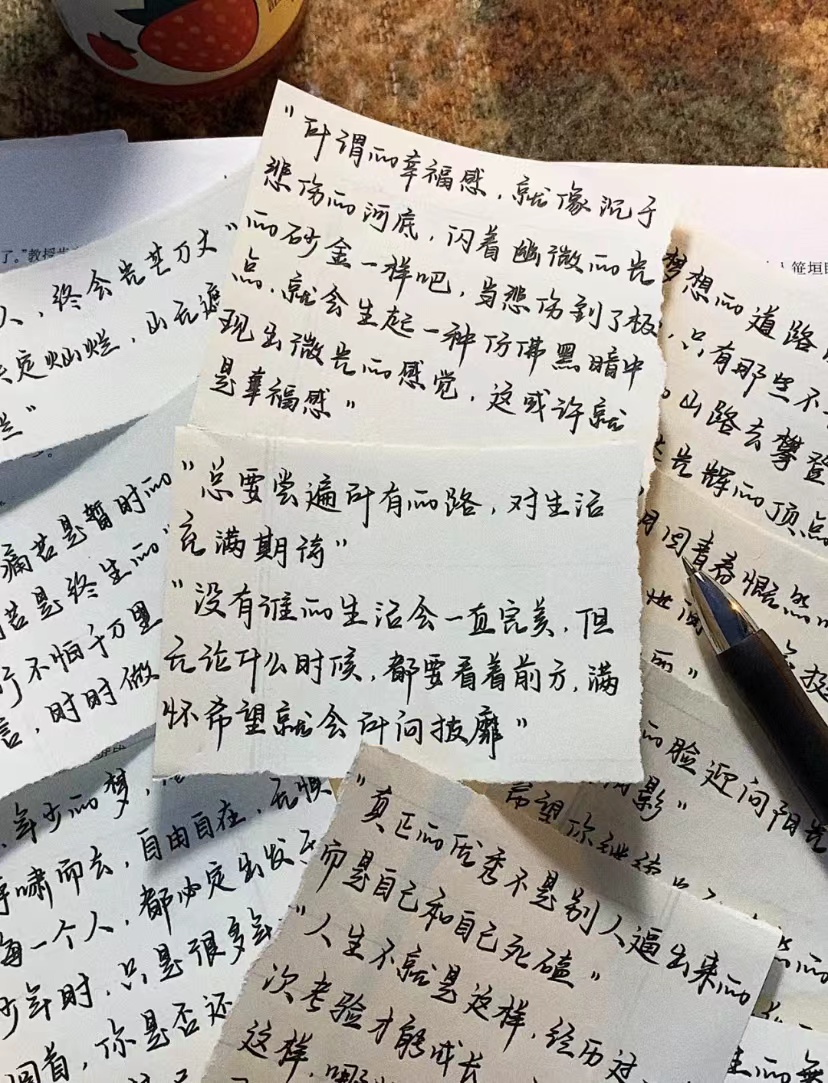 "所谓的幸福感，就像沉于
悲伤的河底，闪着幽微的光
的砂金一样吧，当悲伤到了极
点，就会生起一种仿佛黑暗中
现出微光的感觉，这或许就
是幸福感"
"总要尝遍所有的路，对生活
充满期待"
"没有谁的生活会一直完美，但
无论什么时候，都要看着前方，满
怀希望就会所向披靡"
了。"教授
人，终会光芒万丈"
定灿烂，山无遮
痛苦是暂时的
苦是终生的"
不怕千万里
言，时时做
年少的梦，
啸而去，自由自在，无惧
每一个人，都必定出发
少年时，只是很多年
回首，你是否还
笹垣
梦想的道路
只有那些不
山路去攀登
光辉的顶点
青春
的脸迎向阳光
影"
希望你继续
"真正的优秀不是别人逼出来的
而是自己和自己死磕"
"人生不就是这样，经历过
次考验才能成长
这样，哪